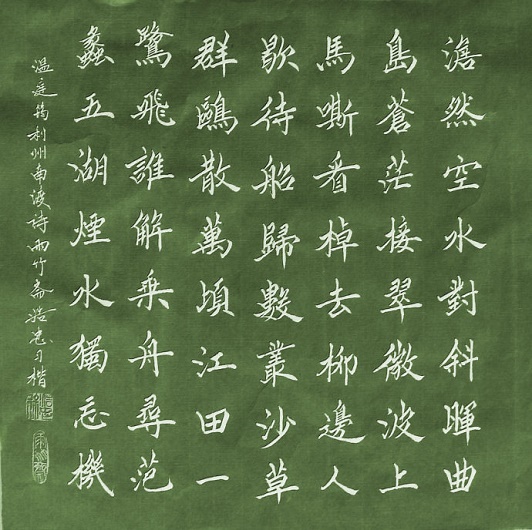 澹然空水對斜暉曲
島蒼茫接翠微波上
馬嘶看棹去柳邊人
歇待船歸數叢沙草
群鷗散萬頃江田一
鷺飛誰解乘舟尋范
蠡五湖煙水獨忘機
溫庭筠利州南渡詩雨竹齋浩志习楷